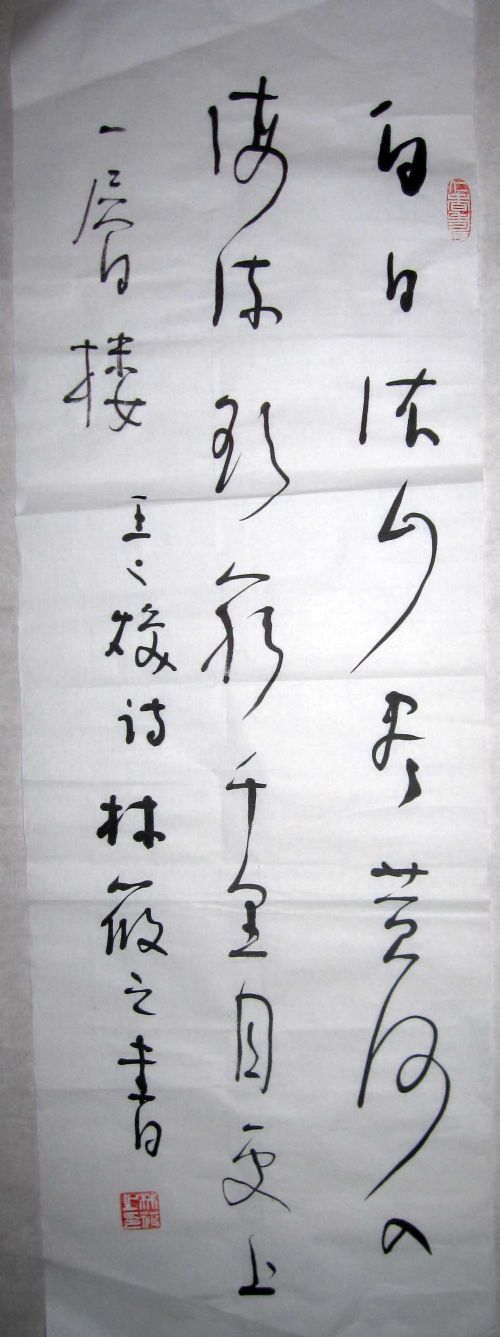 白日依山尽黄河入
海流欲穷千里目更上
一層楼 王之焕诗 林筱之書